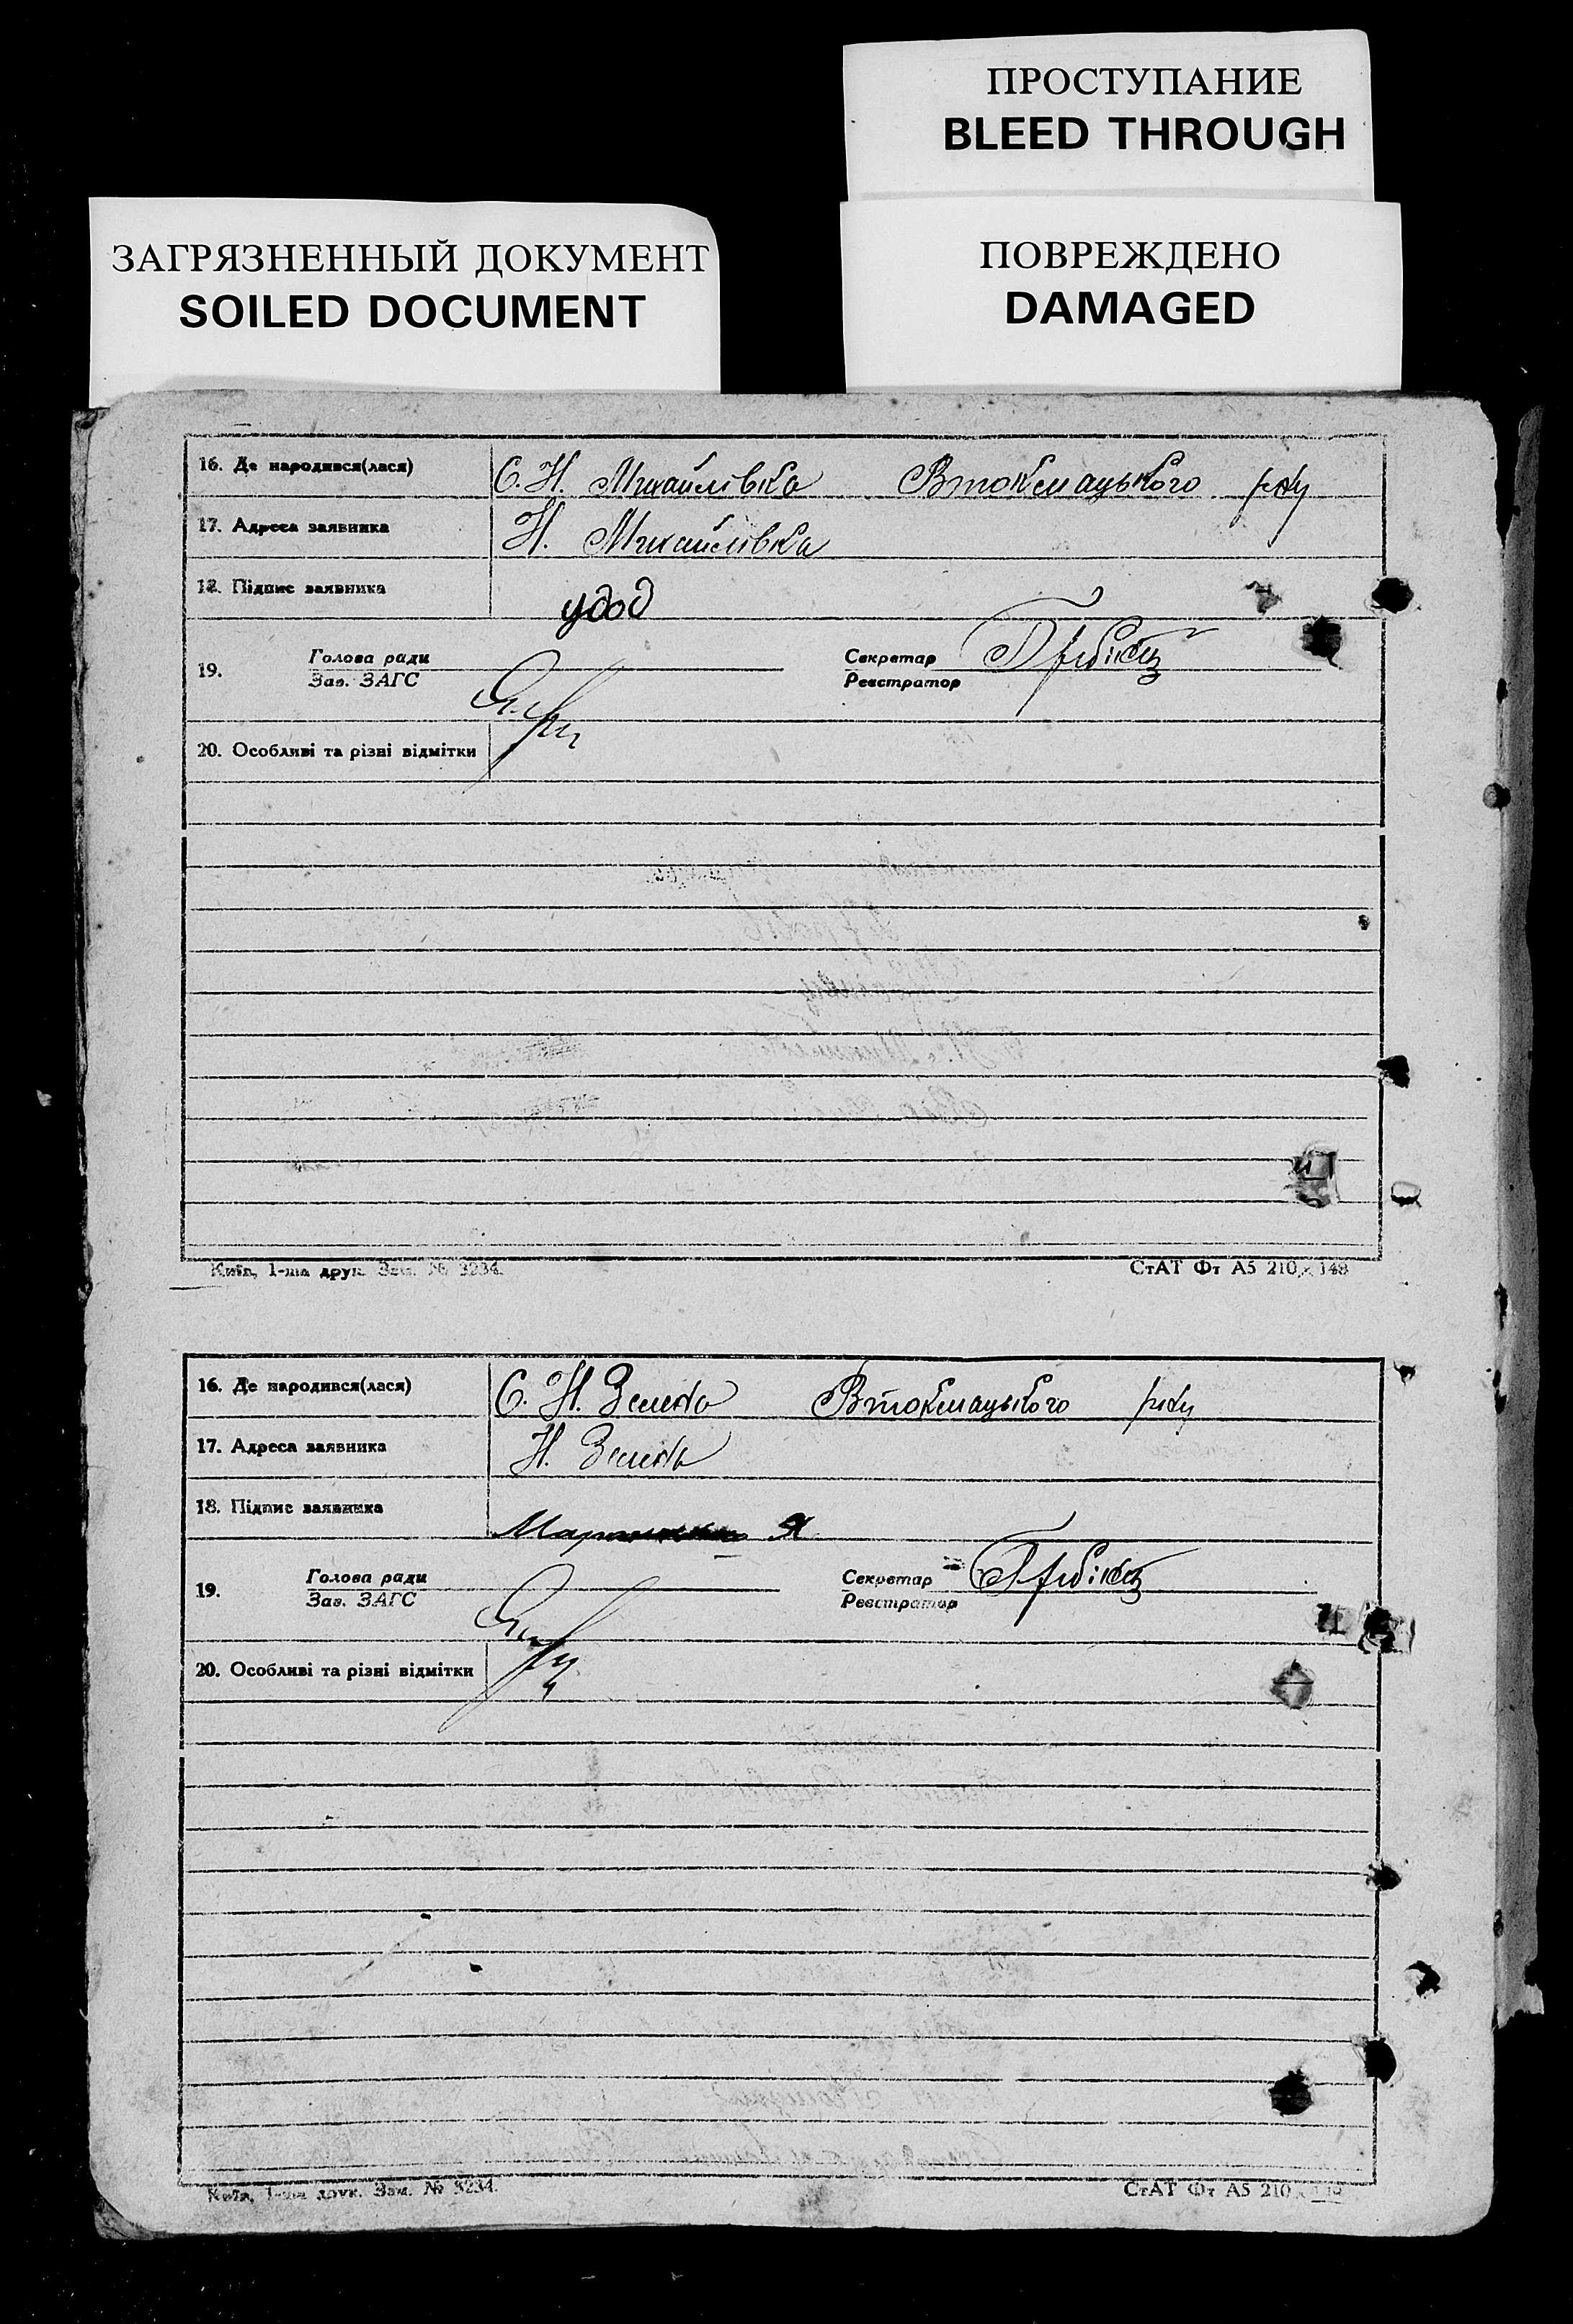 ПРОСТУПАНИЕ
BLEED THROUGH
ЗАГРЯЗНЕННЫЙ ДОКУМЕНТ
SOILED DOCUMENT
ПОВРЕЖДЕНО
DAMAGED
16. Де народився(лася) С. Н. Михайлівка Втокмацького р-ну
17. Адреса заявника Н. Михайлівка
18. Підпис заявника удод
19. Голова ради Секретар
Зав. ЗАГС Реєстратор
20. Особливі та різні відмітки
Київ, 1-ша друк. Зам. № 3234. СтАТ Фт А5 210 х 148
16. Де народився(лася) С. Н. Втокмацького р-ну
17. Адреса заявника Н.
18. Підпис заявника Я
19. Голова ради Секретар
Зав. ЗАГС Реєстратор
20. Особливі та різні відмітки
Київ, 1-ша друк. Зам. № 3234. СтАТ Фт А5 210